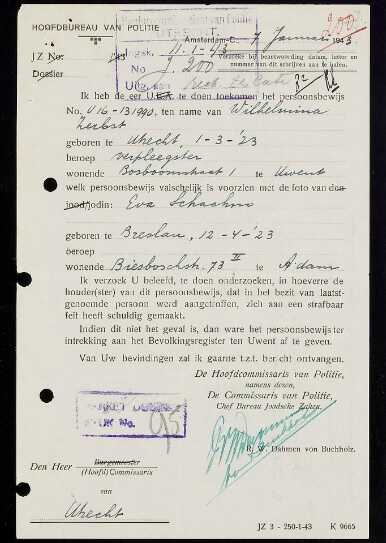 HOOFDBUREAU VAN POLITIE
Amsterdam-C., 7 Januari 1943.
JZ No.
Ingek. 11.1-43
Verzoeke bij beantwoording datum, letter en
nummer van dit schrijven aan te halen.
Dossier
No J. 200
Ik heb de eer U.E.A. te doen toekomen het persoonsbewijs
No. U 16 - 131990, ten name van Wilhelmina
Zerbst
geboren te Utrecht, 1-3-'23
beroep verpleegster
wonende Bosboomstraat 1 te Uwent
welk persoonsbewijs valschelijk is voorzien met de foto van den
jood/jodin: Eva Schachno
geboren te Breslau, 12-4-'23
beroep
wonende Biesboschstr. 73 II te A'dam
Ik verzoek U beleefd, te doen onderzoeken, in hoeverre de
houder(ster) van dit persoonsbewijs, dat in het bezit van laatst-
genoemde persoon werd aangetroffen, zich aan een strafbaar
feit heeft schuldig gemaakt.
Indien dit niet het geval is, dan ware het persoonsbewijs ter
intrekking aan het Bevolkingsregister ten Uwent af te geven.
Van Uw bevindingen zal ik gaarne t.z.t. bericht ontvangen.
De Hoofdcommissaris van Politie,
namens dezen,
De Commissaris van Politie,
Chef Bureau Joodsche Zaken,
R. W. Dahmen von Buchholz.
Den Heer Burgemeester
(Hoofd) Commissaris
van
Utrecht
JZ 3 - 250-1-43 K 9665